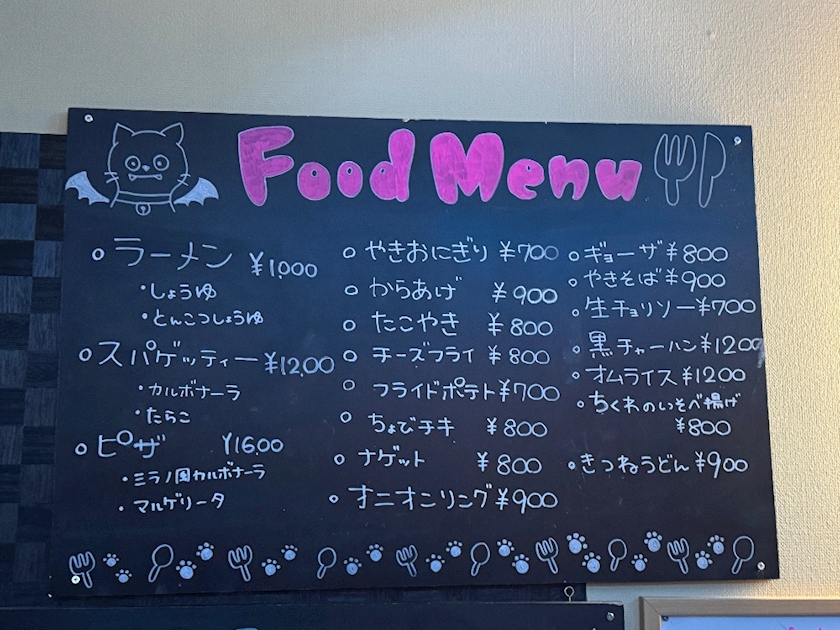 Food Menu
ラーメン ¥1,000
・しょうゆ
・とんこつしょうゆ
スパゲッティー ¥1200
・カルボナーラ
・たらこ
ピザ ¥1600
・ミラノ風カルボナーラ
・マルゲリータ
やきおにぎり ¥700
からあげ ¥900
たこやき ¥800
チーズフライ ¥800
フライドポテト ¥700
ちょびチキ ¥800
ナゲット ¥800
オニオンリング ¥900
ギョーザ ¥800
やきそば ¥900
生チョリソー ¥700
黒チャーハン ¥1200
オムライス ¥1200
ちくわのいそべ揚げ
¥800
きつねうどん ¥900